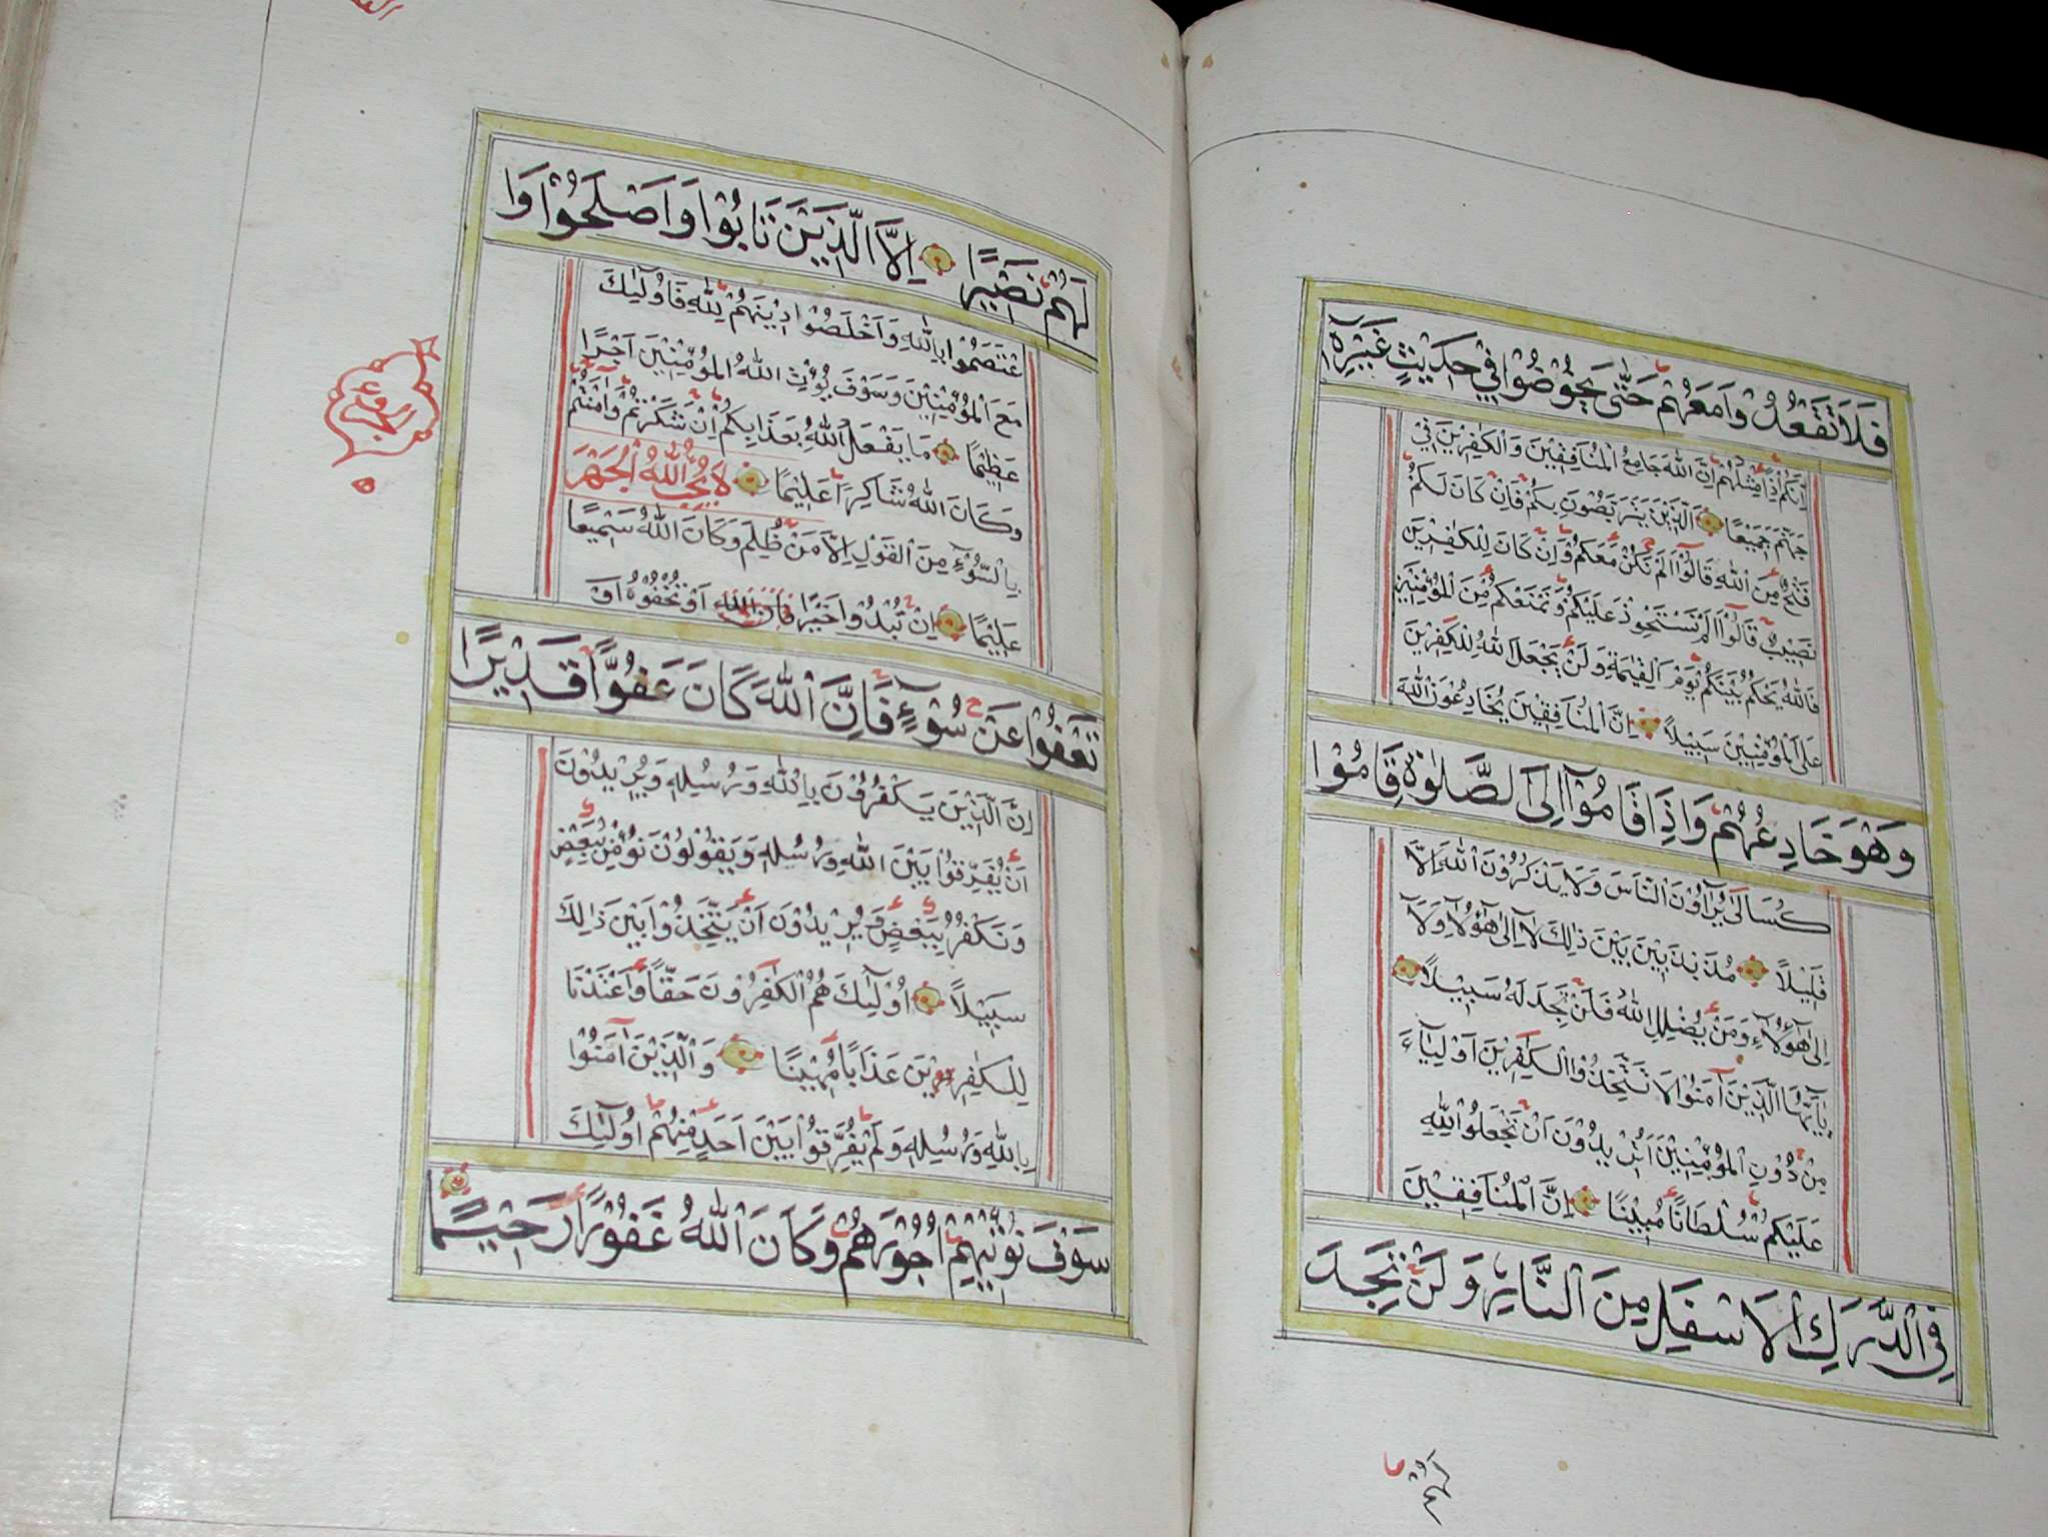 فَلَا تَقْعُدُوا مَعَهُمْ حَتَّى يَخُوضُوا فِي حَدِيثٍ غَيْرِهِ
اِنَّكُمْ اِذًا مِثْلُهُمْ اِنَّ اللّٰهَ جَامِعُ الْمُنَافِقِينَ وَالْكَافِرِينَ فِي
جَهَنَّمَ جَمِيعًا الَّذِينَ يَتَرَبَّصُونَ بِكُمْ فَاِنْ كَانَ لَكُمْ
فَتْحٌ مِنَ اللّٰهِ قَالُوٓا اَلَمْ نَكُنْ مَعَكُمْ وَاِنْ كَانَ لِلْكٰفِرِينَ
نَصِيبٌ قَالُوٓا اَلَمْ نَسْتَحْوِذْ عَلَيْكُمْ وَنَمْنَعْكُمْ مِنَ الْمُؤْمِنِينَ
فَاللّٰهُ يَحْكُمُ بَيْنَكُمْ يَوْمَ الْقِيٰمَةِ وَلَنْ يَجْعَلَ اللّٰهُ لِلْكٰفِرِينَ
عَلَى الْمُؤْمِنِينَ سَبِيلًا اِنَّ الْمُنَافِقِينَ يُخَادِعُونَ اللّٰهَ
وَهُوَ خَادِعُهُمْ وَاِذَا قَامُوٓا اِلَى الصَّلٰوةِ قَامُوا
كُسَالَى يُرَآؤُنَ النَّاسَ وَلَا يَذْكُرُونَ اللّٰهَ اِلَّا
قَلِيلًا مُذَبْذَبِينَ بَيْنَ ذٰلِكَ لَآ اِلَى هٰٓؤُلَآءِ وَلَآ
اِلَى هٰٓؤُلَآءِ وَمَنْ يُضْلِلِ اللّٰهُ فَلَنْ تَجِدَ لَهُ سَبِيلًا
يَآ اَيُّهَا الَّذِينَ آمَنُوا لَا تَتَّخِذُوا الْكٰفِرِينَ اَوْلِيَآءَ
مِنْ دُونِ الْمُؤْمِنِينَ اَتُرِيدُونَ اَنْ تَجْعَلُوا لِلّٰهِ
عَلَيْكُمْ سُلْطَانًا مُبِينًا اِنَّ الْمُنَافِقِينَ
فِي الدَّرَكِ الْاَسْفَلِ مِنَ النَّارِ وَلَنْ تَجِدَ
لَهُمْ
لَهُمْ نَصِيرًا اِلَّا الَّذِينَ تَابُوا وَاَصْلَحُوا وَا
عْتَصَمُوا بِاللّٰهِ وَاَخْلَصُوا دِينَهُمْ لِلّٰهِ فَاُولٰٓئِكَ
مَعَ الْمُؤْمِنِينَ وَسَوْفَ يُؤْتِ اللّٰهُ الْمُؤْمِنِينَ اَجْرًا
عَظِيمًا مَا يَفْعَلُ اللّٰهُ بِعَذَابِكُمْ اِنْ شَكَرْتُمْ وَاٰمَنْتُمْ
وَكَانَ اللّٰهُ شَاكِرًا عَلِيمًا لَا يُحِبُّ اللّٰهُ الْجَهْرَ
بِالسُّوٓءِ مِنَ الْقَوْلِ اِلَّا مَنْ ظُلِمَ وَكَانَ اللّٰهُ سَمِيعًا
عَلِيمًا اِنْ تُبْدُوا خَيْرًا فَاِنَّ اللّٰهَ اَوْ تُخْفُوهُ اَوْ
تَعْفُوا عَنْ سُوٓءٍ فَاِنَّ اللّٰهَ كَانَ عَفُوًّا قَدِيرًا
اِنَّ الَّذِينَ يَكْفُرُونَ بِاللّٰهِ وَرُسُلِهِ وَيُرِيدُونَ
اَنْ يُفَرِّقُوا بَيْنَ اللّٰهِ وَرُسُلِهِ وَيَقُولُونَ نُؤْمِنُ بِبَعْضٍ
وَنَكْفُرُ بِبَعْضٍ وَيُرِيدُونَ اَنْ يَتَّخِذُوا بَيْنَ ذٰلِكَ
سَبِيلًا اُولٰٓئِكَ هُمُ الْكٰفِرُونَ حَقًّا وَاَعْتَدْنَا
لِلْكٰفِرِينَ عَذَابًا مُهِينًا وَالَّذِينَ اٰمَنُوا
بِاللّٰهِ وَرُسُلِهِ وَلَمْ يُفَرِّقُوا بَيْنَ اَحَدٍ مِنْهُمْ اُولٰٓئِكَ
سَوْفَ نُؤْتِيهِمْ اُجُورَهُمْ وَكَانَ اللّٰهُ غَفُورًا رَحِيمًا